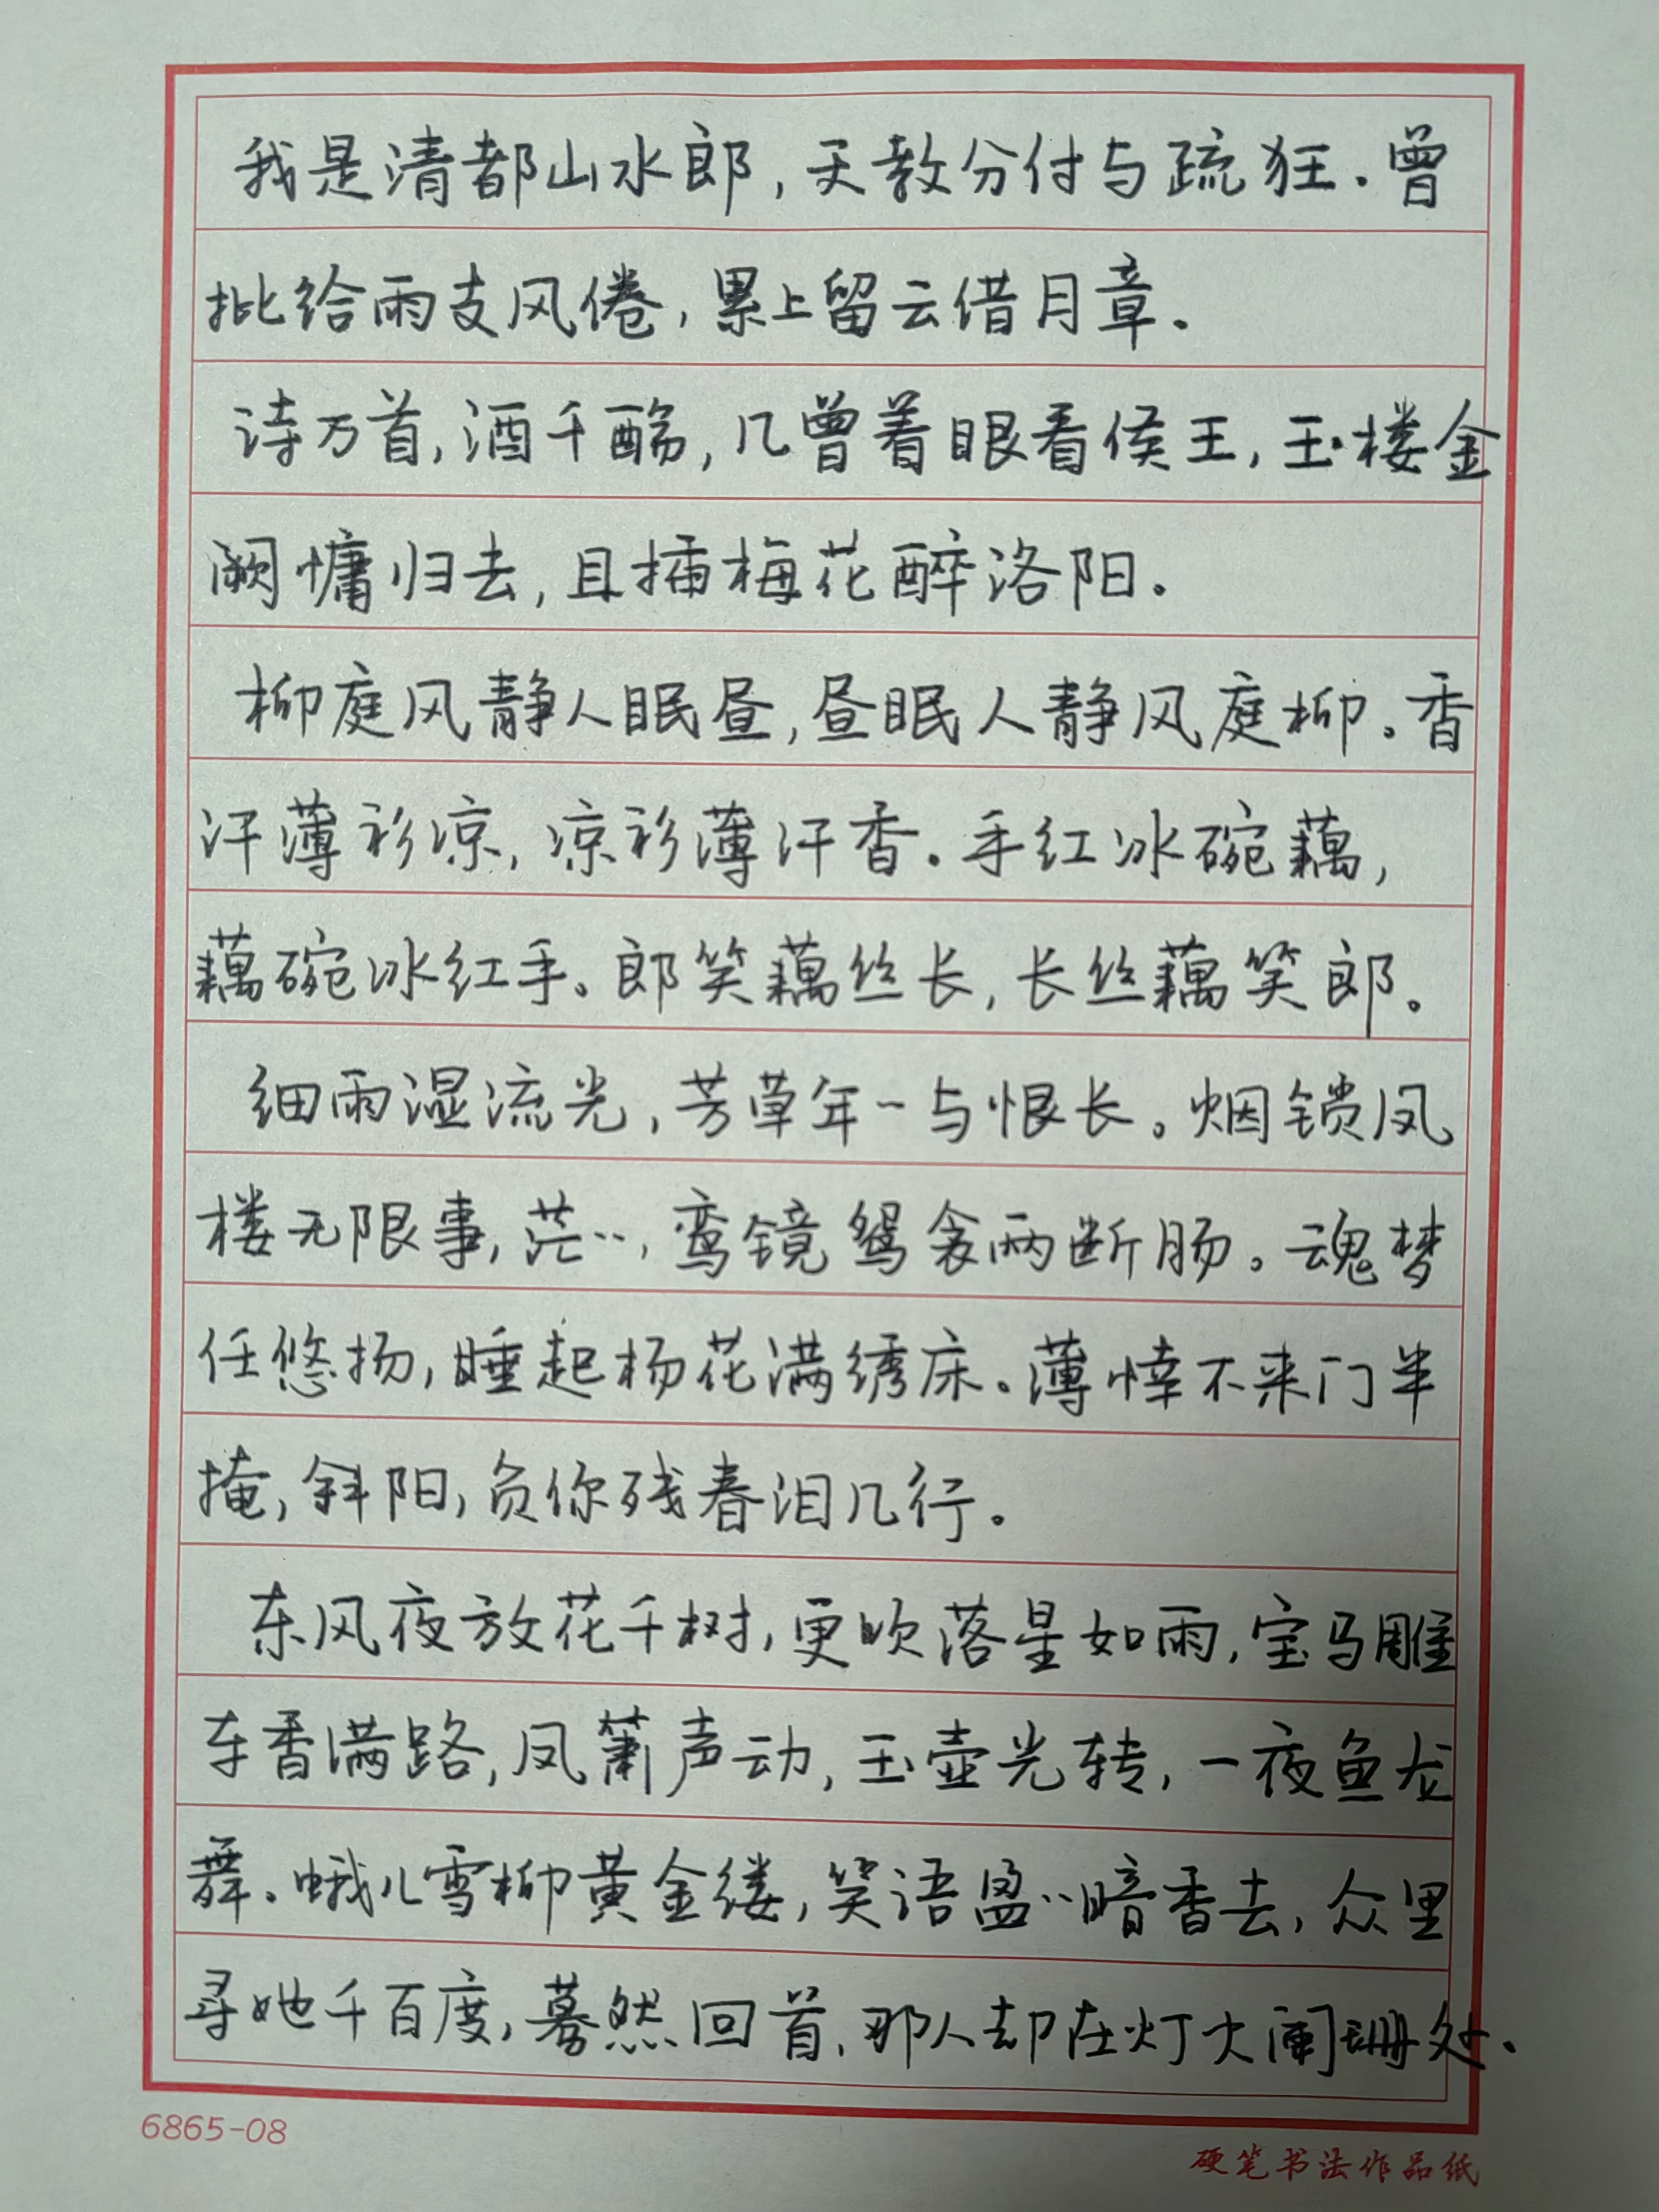 我是清都山水郎,天教分付与疏狂.曾
批给雨支风倦,累上留云借月章。
诗万首,酒千酾,几曾着眼看侯王,玉楼金
阙慵归去,且插梅花醉洛阳。
柳庭风静人眠昼,昼眠人静风庭柳。香
汗薄衫凉,凉衫薄汗香。手红冰碗藕,
藕碗冰红手。郎笑藕丝长,长丝藕笑郎。
细雨湿流光,芳草年〻与恨长。烟锁凤
楼无限事,茫〻,鸾镜鸳衾两断肠。魂梦
任悠扬,睡起杨花满绣床。薄悻不来门半
掩,斜阳,负你残春泪几行。
东风夜放花千树,更吹落星如雨,宝马雕
车香满路,凤箫声动,玉壶光转,一夜鱼龙
舞。蛾儿雪柳黄金缕,笑语盈〻暗香去,众里
寻她千百度,蓦然回首,那人却在灯火阑珊处.
6865-08
硬笔书法作品纸